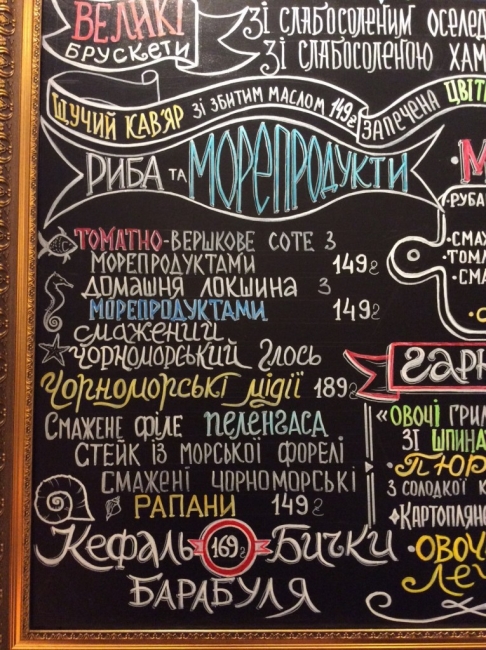 ВЕЛИКІ
БРУСКЕТИ
ЗІ СЛАБОСОЛЕНИМ
ЗІ СЛАБОСОЛЕНОЮ
ЩУЧИЙ КАВ'ЯР ЗІ ЗБИТИМ МАСЛОМ 149₴
ЗАПЕЧЕНА
РИБА ТА МОРЕПРОДУКТИ
ТОМАТНО-ВЕРШКОВЕ СОТЕ З
МОРЕПРОДУКТАМИ 149₴
ДОМАШНЯ ЛОКШИНА З
МОРЕПРОДУКТАМИ 149₴
СМАЖЕНИЙ
ЧОРНОМОРСЬКИЙ ГЛОСЬ
ЧОРНОМОРСЬКІ МІДІЇ 189₴
СМАЖЕНЕ ФІЛЕ ПЕЛЕНГАСА
СТЕЙК ІЗ МОРСЬКОЇ ФОРЕЛІ
СМАЖЕНІ ЧОРНОМОРСЬКІ
РАПАНИ 149₴
КЕФАЛЬ 169₴ БИЧКИ
БАРАБУЛЯ
«ОВОЧІ
ЗІ
З СОЛОДКОЇ